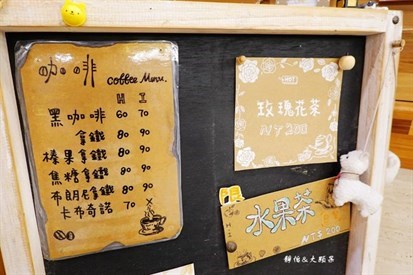 咖啡 coffee Menu.
H I
黑咖啡 60 70
拿鐵 80 90
榛果拿鐵 80 90
焦糖拿鐵 80 90
布朗尼拿鐵 80 90
卡布奇諾 70
HOT
玫瑰花茶
NT 200
水果茶
NT$ 200
靜怡&大顆呆